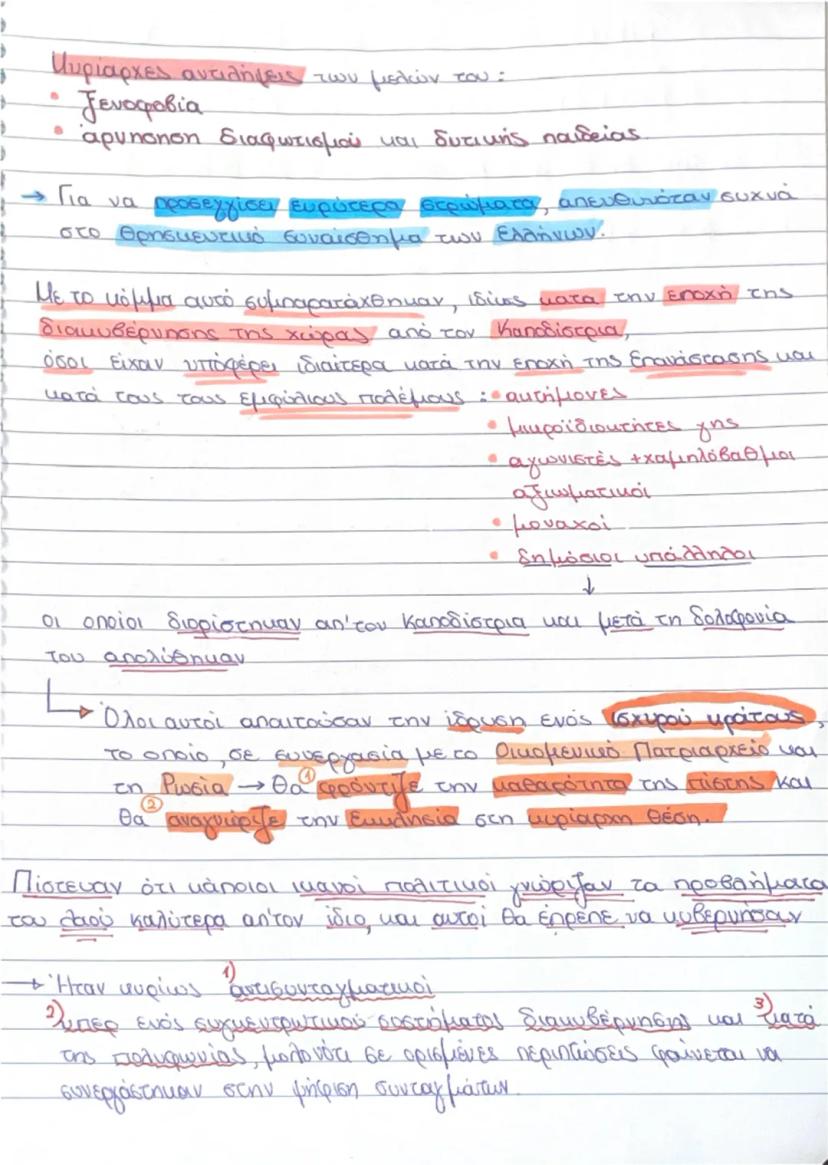 Κυρίαρχες αντιλήψεις των μελών του:
• ξενοφοβία
• άρνηση διαφωτισμού και δυτικής παιδείας
→ Για να προσεγγίσει ευρύτερα στρώματα, απευθυνόταν συχνά
στο θρησκευτικό συναίσθημα των Ελλήνων.
Με το κόμμα αυτό συμπαρατάχθηκαν, ιδίως κατα την εποχή της
διακυβέρνησης της χώρας από τον Καποδίστρια,
όσοι είχαν υποφέρει ιδιαίτερα κατά την εποχή της Επανάστασης και
κατά τους τους Εμφύλιους πολέμους: • ακτήμονες
• μικροϊδιοκτήτες γης
• αγωνιστές + χαμηλόβαθμοι
αξιωματικοί
• μοναχοί
• δημόσιοι υπάλληλοι
↓
οι οποίοι διορίστηκαν απ'τον Καποδίστρια και μετά τη δολοφονία
του απολύθηκαν
Όλοι αυτοί απαιτούσαν την ίδρυση ενός ισχυρού κράτους,
το οποίο, σε συνεργασία με το Οικομενικό Πατριαρχείο και
τη Ρωσία → Θα ① φρόντιζε την καθαρότητα της πίστης και
θα ② αναγνώριζε την Εκκλησία στη κυρίαρχη θέση.
Πίστευαν ότι κάποιοι ικανοί πολιτικοί γνώριζαν τα προβλήματα
του λαού καλύτερα απ'τον ίδιο, και αυτοί θα έπρεπε να κυβερνήσουν
→ Ήταν κυρίως 1) αντισυνταγματικοί
2) υπερ ενός συγκεντρωτικού συστήματος διακυβέρνησης και 3) κατά
της πολυφωνίας, μολονότι σε ορισμένες περιπτώσεις φαίνεται να
συνεργάστηκαν στην ψήφιση συνταγμάτων.